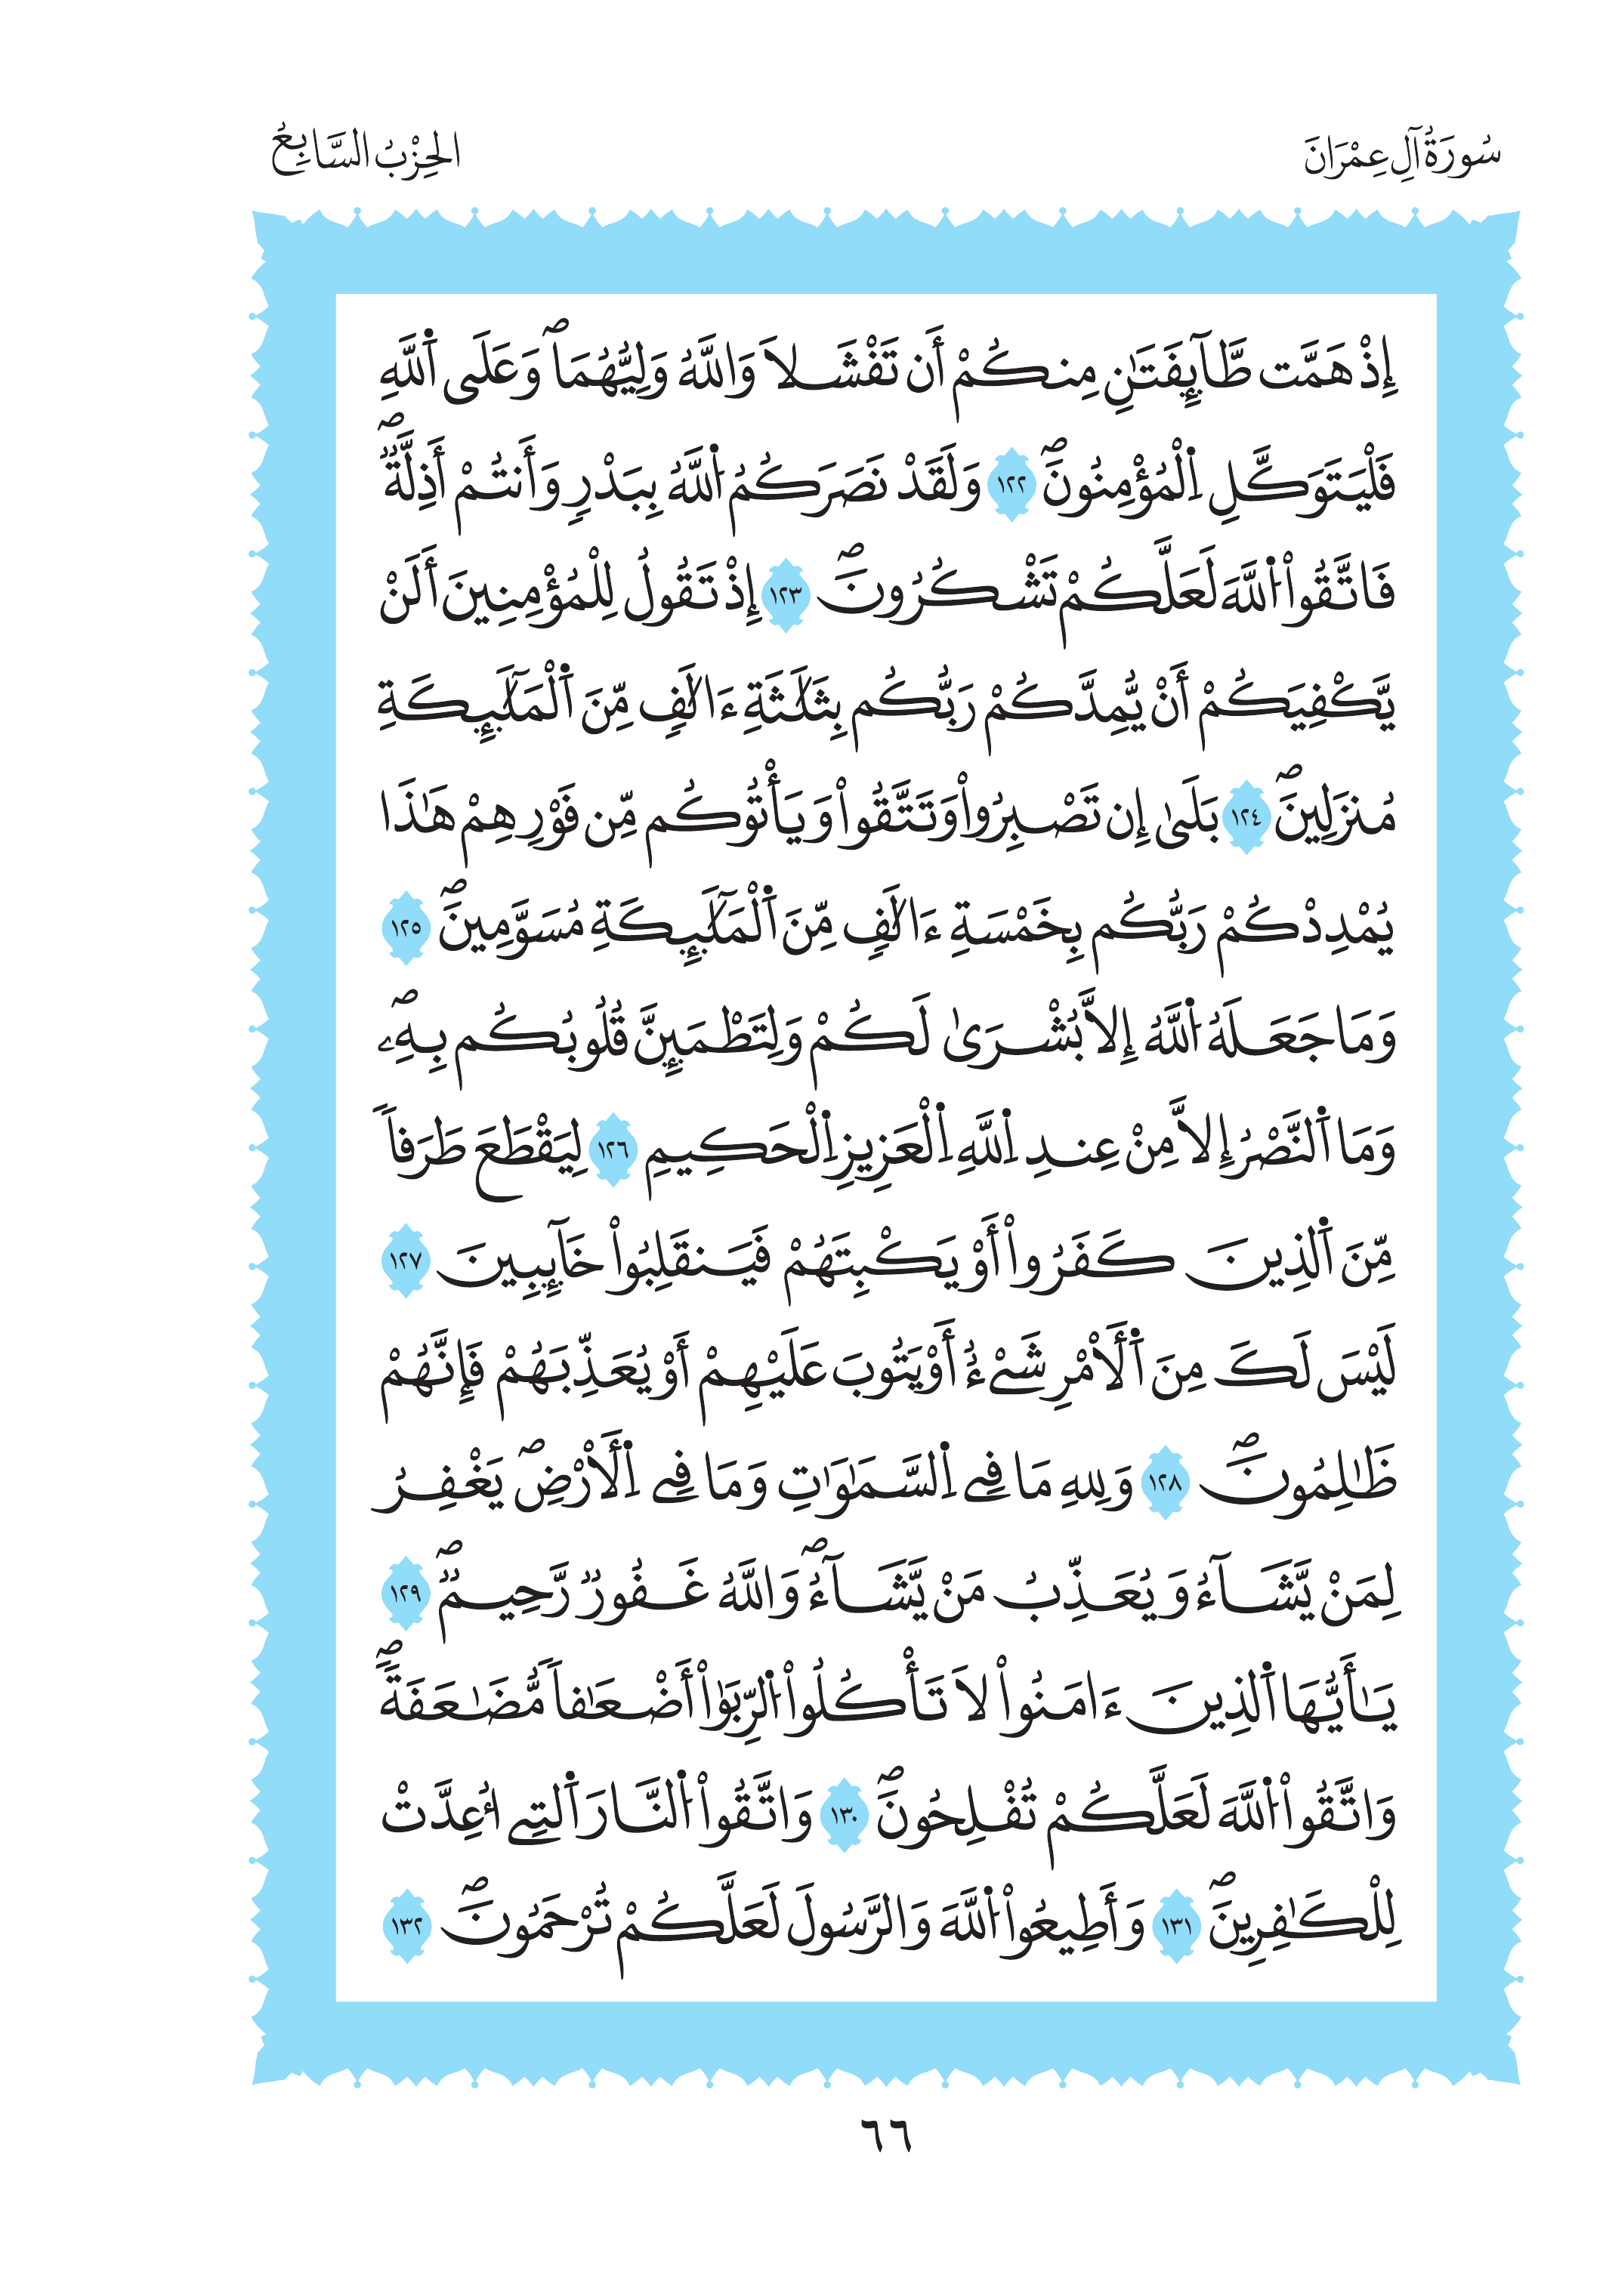 سُورَةُ آلِ عِمْرَانَ
الحِزْبُ السَّابِعُ
إِذْ هَمَّت طَّآئِفَتَٰنِ مِنكُمْ أَن تَفْشَلَا وَاللَّهُ وَلِيُّهُمَاۖ وَعَلَى اَ۬للَّهِ
فَلْيَتَوَكَّلِ اِ۬لْمُؤْمِنُونَۖ ١٢٢ وَلَقَدْ نَصَرَكُمُ اُ۬للَّهُ بِبَدْرٖ وَأَنتُمْ أَذِلَّةٞۖ
فَاتَّقُواْ اُ۬للَّهَ لَعَلَّكُمْ تَشْكُرُونَۖ ١٢٣ إِذْ تَقُولُ لِلْمُؤْمِنِينَ أَلَنْ
يَّكْفِيَكُمْ أَنْ يُّمِدَّكُمْ رَبُّكُم بِثَلَٰثَةِ ءَالَٰفٖ مِّنَ اَ۬لْمَلَٰٓئِكَةِ
مُنزَلِينَۖ ١٢٤ بَلَىٰ إِن تَصْبِرُواْ وَتَتَّقُواْ وَيَأْتُوكُم مِّن فَوْرِهِمْ هَٰذَا
يُمْدِدْكُمْ رَبُّكُم بِخَمْسَةِ ءَالَٰفٖ مِّنَ اَ۬لْمَلَٰٓئِكَةِ مُسَوَّمِينَۖ ١٢٥
وَمَا جَعَلَهُ اُ۬للَّهُ إِلَّا بُشْرَىٰ لَكُمْ وَلِتَطْمَئِنَّ قُلُوبُكُم بِهِۦۖ
وَمَا اَ۬لنَّصْرُ إِلَّا مِنْ عِندِ اِ۬للَّهِ اِ۬لْعَزِيزِ اِ۬لْحَكِيمِ ١٢٦ لِيَقْطَعَ طَرَفاٗ
مِّنَ اَ۬لذِينَ كَفَرُواْ أَوْ يَكْبِتَهُمْ فَيَنقَلِبُواْ خَآئِبِينَ ١٢٧
لَيْسَ لَكَ مِنَ اَ۬لْأَمْرِ شَےْءٌ أَوْ يَتُوبَ عَلَيْهِمْ أَوْ يُعَذِّبَهُمْ فَإِنَّهُمْ
ظَٰلِمُونَۖ ١٢٨ وَلِلهِ مَا فِے اِ۬لسَّمَٰوَٰتِ وَمَا فِے اِ۬لْأَرْضِۖ يَغْفِرُ
لِمَنْ يَّشَآءُ وَيُعَذِّبُ مَنْ يَّشَآءُۖ وَاللَّهُ غَفُورٞ رَّحِيمٞۖ ١٢٩
يَٰأَيُّهَا اَ۬لذِينَ ءَامَنُواْ لَا تَأْكُلُواْ اُ۬لرِّبَوٰاْ أَضْعَٰفاٗ مُّضَٰعَفَةٗۖ
وَاتَّقُواْ اُ۬للَّهَ لَعَلَّكُمْ تُفْلِحُونَۖ ١٣٠ وَاتَّقُواْ اُ۬لنَّارَ اَ۬لتِے أُعِدَّتْ
لِلْكَٰفِرِينَۖ ١٣١ وَأَطِيعُواْ اُ۬للَّهَ وَالرَّسُولَ لَعَلَّكُمْ تُرْحَمُونَۖ ١٣٢
٦٦